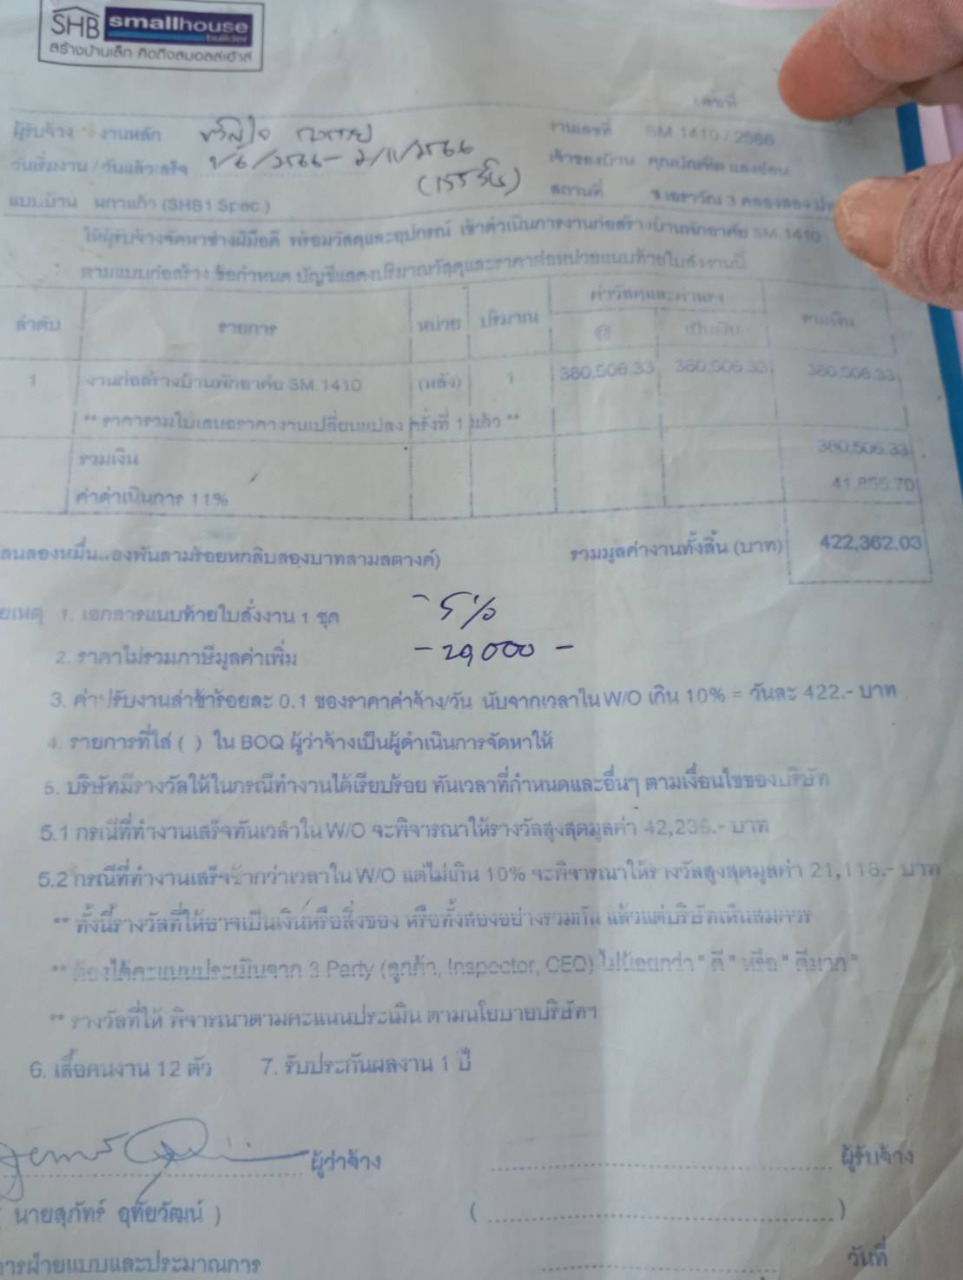 SHB smallhouse builder
สร้างบ้านเล็ก คิดถึงสมอลล์เฮ้าส์
เลขที่
ผู้รับจ้าง งานหลัก งานเลขที่ SM 1410 / 2566
วันเริ่มงาน / วันแล้วเสร็จ 1/6/2566 - 2/11/2566 เจ้าของบ้าน คุณบัณฑิต
(155 วัน)
แบบบ้าน ผกาแก้ว (SHB1 Spec.) สถานที่ ซ.เอราวัณ 3 คลองสอง
ให้ผู้รับจ้างจัดหาช่างฝีมือดี พร้อมวัสดุและอุปกรณ์ เข้าดำเนินการงานก่อสร้างบ้านพักอาศัย SM.1410
ตามแบบก่อสร้าง ข้อกำหนด บัญชีแสดงปริมาณวัสดุและราคาต่อหน่วยแนบท้ายใบสั่งงานนี้
ลำดับ รายการ หน่วย ปริมาณ ค่าวัสดุและค่าแรง รวมเงิน
@ เป็นเงิน
1 งานก่อสร้างบ้านพักอาศัย SM.1410 (หลัง) 1 380,506.33 380,506.33 380,506.33
** ราคารวมใบเสนอราคางานเปลี่ยนแปลง ครั้งที่ 1 แล้ว **
รวมเงิน 380,506.33
ค่าดำเนินการ 11% 41,855.70
สนสองหมื่น...องพันสามร้อยหกสิบสองบาทสามสตางค์) รวมมูลค่างานทั้งสิ้น (บาท) 422,362.03
ยเหตุ 1. เอกสารแนบท้ายใบสั่งงาน 1 ชุด - 5%
2. ราคาไม่รวมภาษีมูลค่าเพิ่ม - 29,000 -
3. ค่าปรับงานล่าช้าร้อยละ 0.1 ของราคาค่าจ้าง/วัน นับจากเวลาใน W/O เกิน 10% = วันละ 422.- บาท
4. รายการที่ใส่ ( ) ใน BOQ ผู้ว่าจ้างเป็นผู้ดำเนินการจัดหาให้
5. บริษัทมีรางวัลให้ในกรณีทำงานได้เรียบร้อย ทันเวลาที่กำหนดและอื่นๆ ตามเงื่อนไขของบริษัท
5.1 กรณีที่ทำงานเสร็จทันเวลาใน W/O จะพิจารณาให้รางวัลสูงสุดมูลค่า 42,236.- บาท
5.2 กรณีที่ทำงานเสร็จช้ากว่าเวลาใน W/O แต่ไม่เกิน 10% จะพิจารณาให้รางวัลสูงสุดมูลค่า 21,118.- บาท
** ทั้งนี้รางวัลที่ให้อาจเป็นเงินหรือสิ่งของ หรือทั้งสองอย่างรวมกัน แล้วแต่บริษัทเห็นสมควร
** ต้องได้คะแนนประเมินจาก 3 Party (ลูกค้า, Inspector, CEO) ไม่น้อยกว่า " ดี " หรือ " ดีมาก "
** รางวัลที่ให้ พิจารณาตามคะแนนประเมิน ตามนโยบายบริษัทฯ
6. เสื้อคนงาน 12 ตัว 7. รับประกันผลงาน 1 ปี
ผู้ว่าจ้าง ผู้รับจ้าง
( นายสุภัทร์ อุทัยวัฒน์ ) ( )
การฝ่ายแบบและประมาณการ วันที่